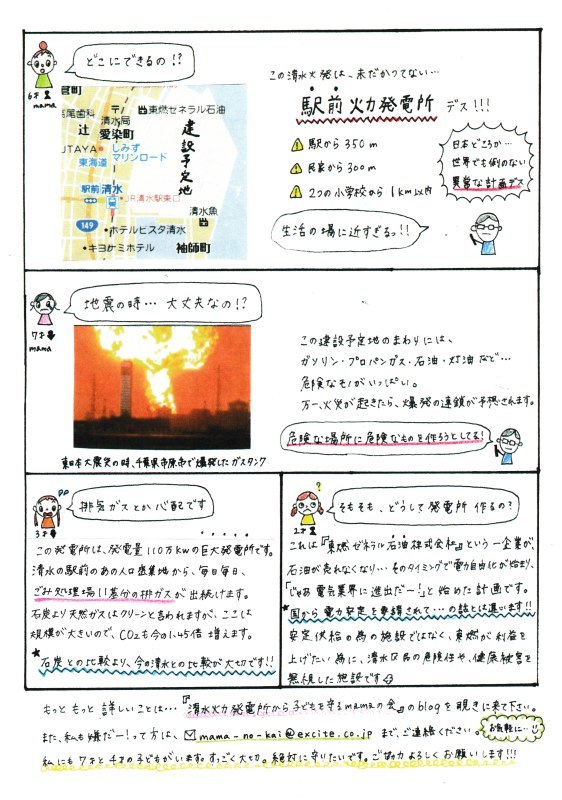 どこにできるの!?
6才
mama
宮町
尾歯科
清水局
東燃ゼネラル石油
辻
愛染町
JTAYA
しみず
マリンロード
東海道
建設予定地
駅前
清水
JR清水駅東口
149
清水魚
ホテルビスタ清水
キヨナミホテル
袖師町
この清水火発は、未だかつてない…
駅前火力発電所 デス!!!
駅から350m
民家から300m
2つの小学校から1km以内
日本どころか…
世界でも例のない
異常な計画デス
生活の場に近すぎるっ!!
地震の時… 大丈夫なの!?
7才
mama
東日本大震災の時、千葉県市原市で爆発したガスタンク
この建設予定地のまわりには、
ガソリン・プロパンガス・石油・灯油など…
危険なモノがいっぱい。
万一、火災が起きたら、爆発の連鎖が予想されます。
危険な場所に危険なものを作ろうとしてる!
排気ガスとか心配です
3才
この発電所は、発電量110万kwの巨大発電所です。
清水の駅前のあの人口密集地から、毎日毎日、
ごみ処理場11基分の排ガスが出続けます。
石炭より天然ガスはクリーンと言われますが、ここは
規模が大きいので、CO2も今の1.45倍 増えます。
★石炭との比較より、今の清水との比較が大切です!!
そもそも、どうして発電所 作るの?
2才
これは『東燃ゼネラル石油株式会社』という一企業が、
石油が売れなくなり…そのタイミングで電力自由化が始まり、
「じゃあ電気業界に進出だ~!」と始めた計画です。
★国から電力安定を要請されて…の話とは違います!!
安定供給の為の施設ではなく、東燃が利益を
上げたい為に、清水区民の危険性や、健康被害を
無視した施設です
もっともっと詳しいことは…『清水火力発電所から子どもを守るmamaの会』のblogを覗きに来て下さい。
また、私も嫌だー!って方は、✉mama-no-kai@excite.co.jp まで、ご連絡ください。
お気軽に…!!
私にも7才と4才の子どもがいます。すっごく大切。絶対に守りたいです。ご協力よろしくお願いします!!!